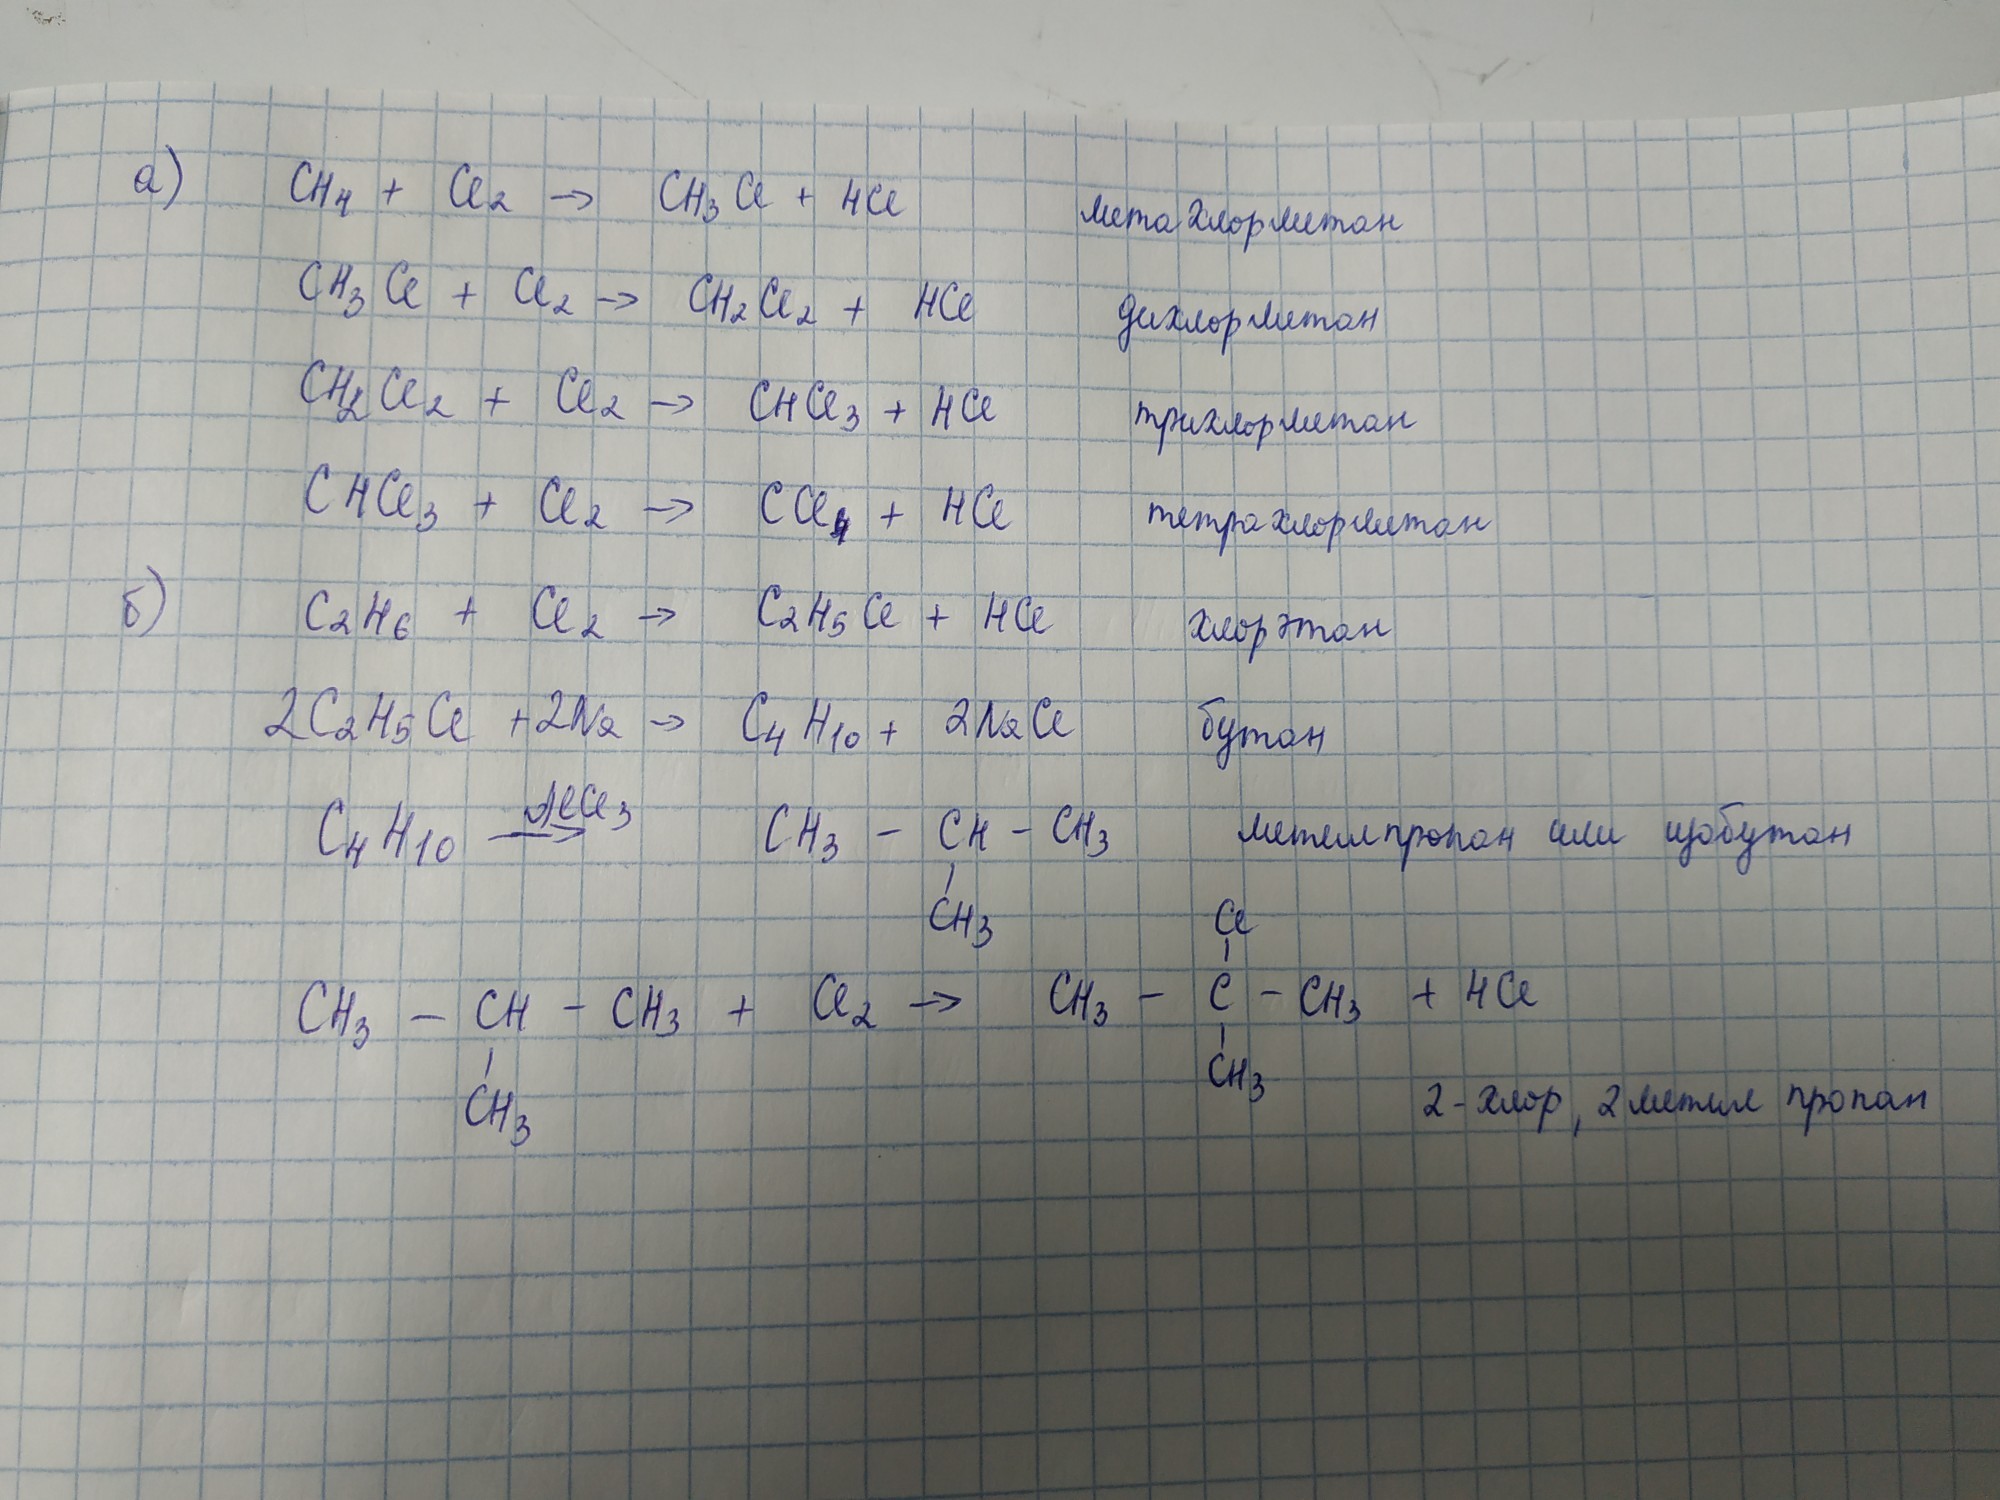 а) CH4 + Cl2 → CH3Cl + HCl метахлорметан
CH3Cl + Cl2 → CH2Cl2 + HCl дихлорметан
CH2Cl2 + Cl2 → CHCl3 + HCl трихлорметан
CHCl3 + Cl2 → CCl4 + HCl тетрахлорметан
б) C2H6 + Cl2 → C2H5Cl + HCl хлорэтан
2C2H5Cl + 2Na → C4H10 + 2NaCl бутан
AlCl3
C4H10 → CH3 - CH - CH3 метилпропан или изобутан
CH3
Cl
CH3 - CH - CH3 + Cl2 → CH3 - C - CH3 + HCl
CH3 CH3
2-хлор, 2 метил пропан